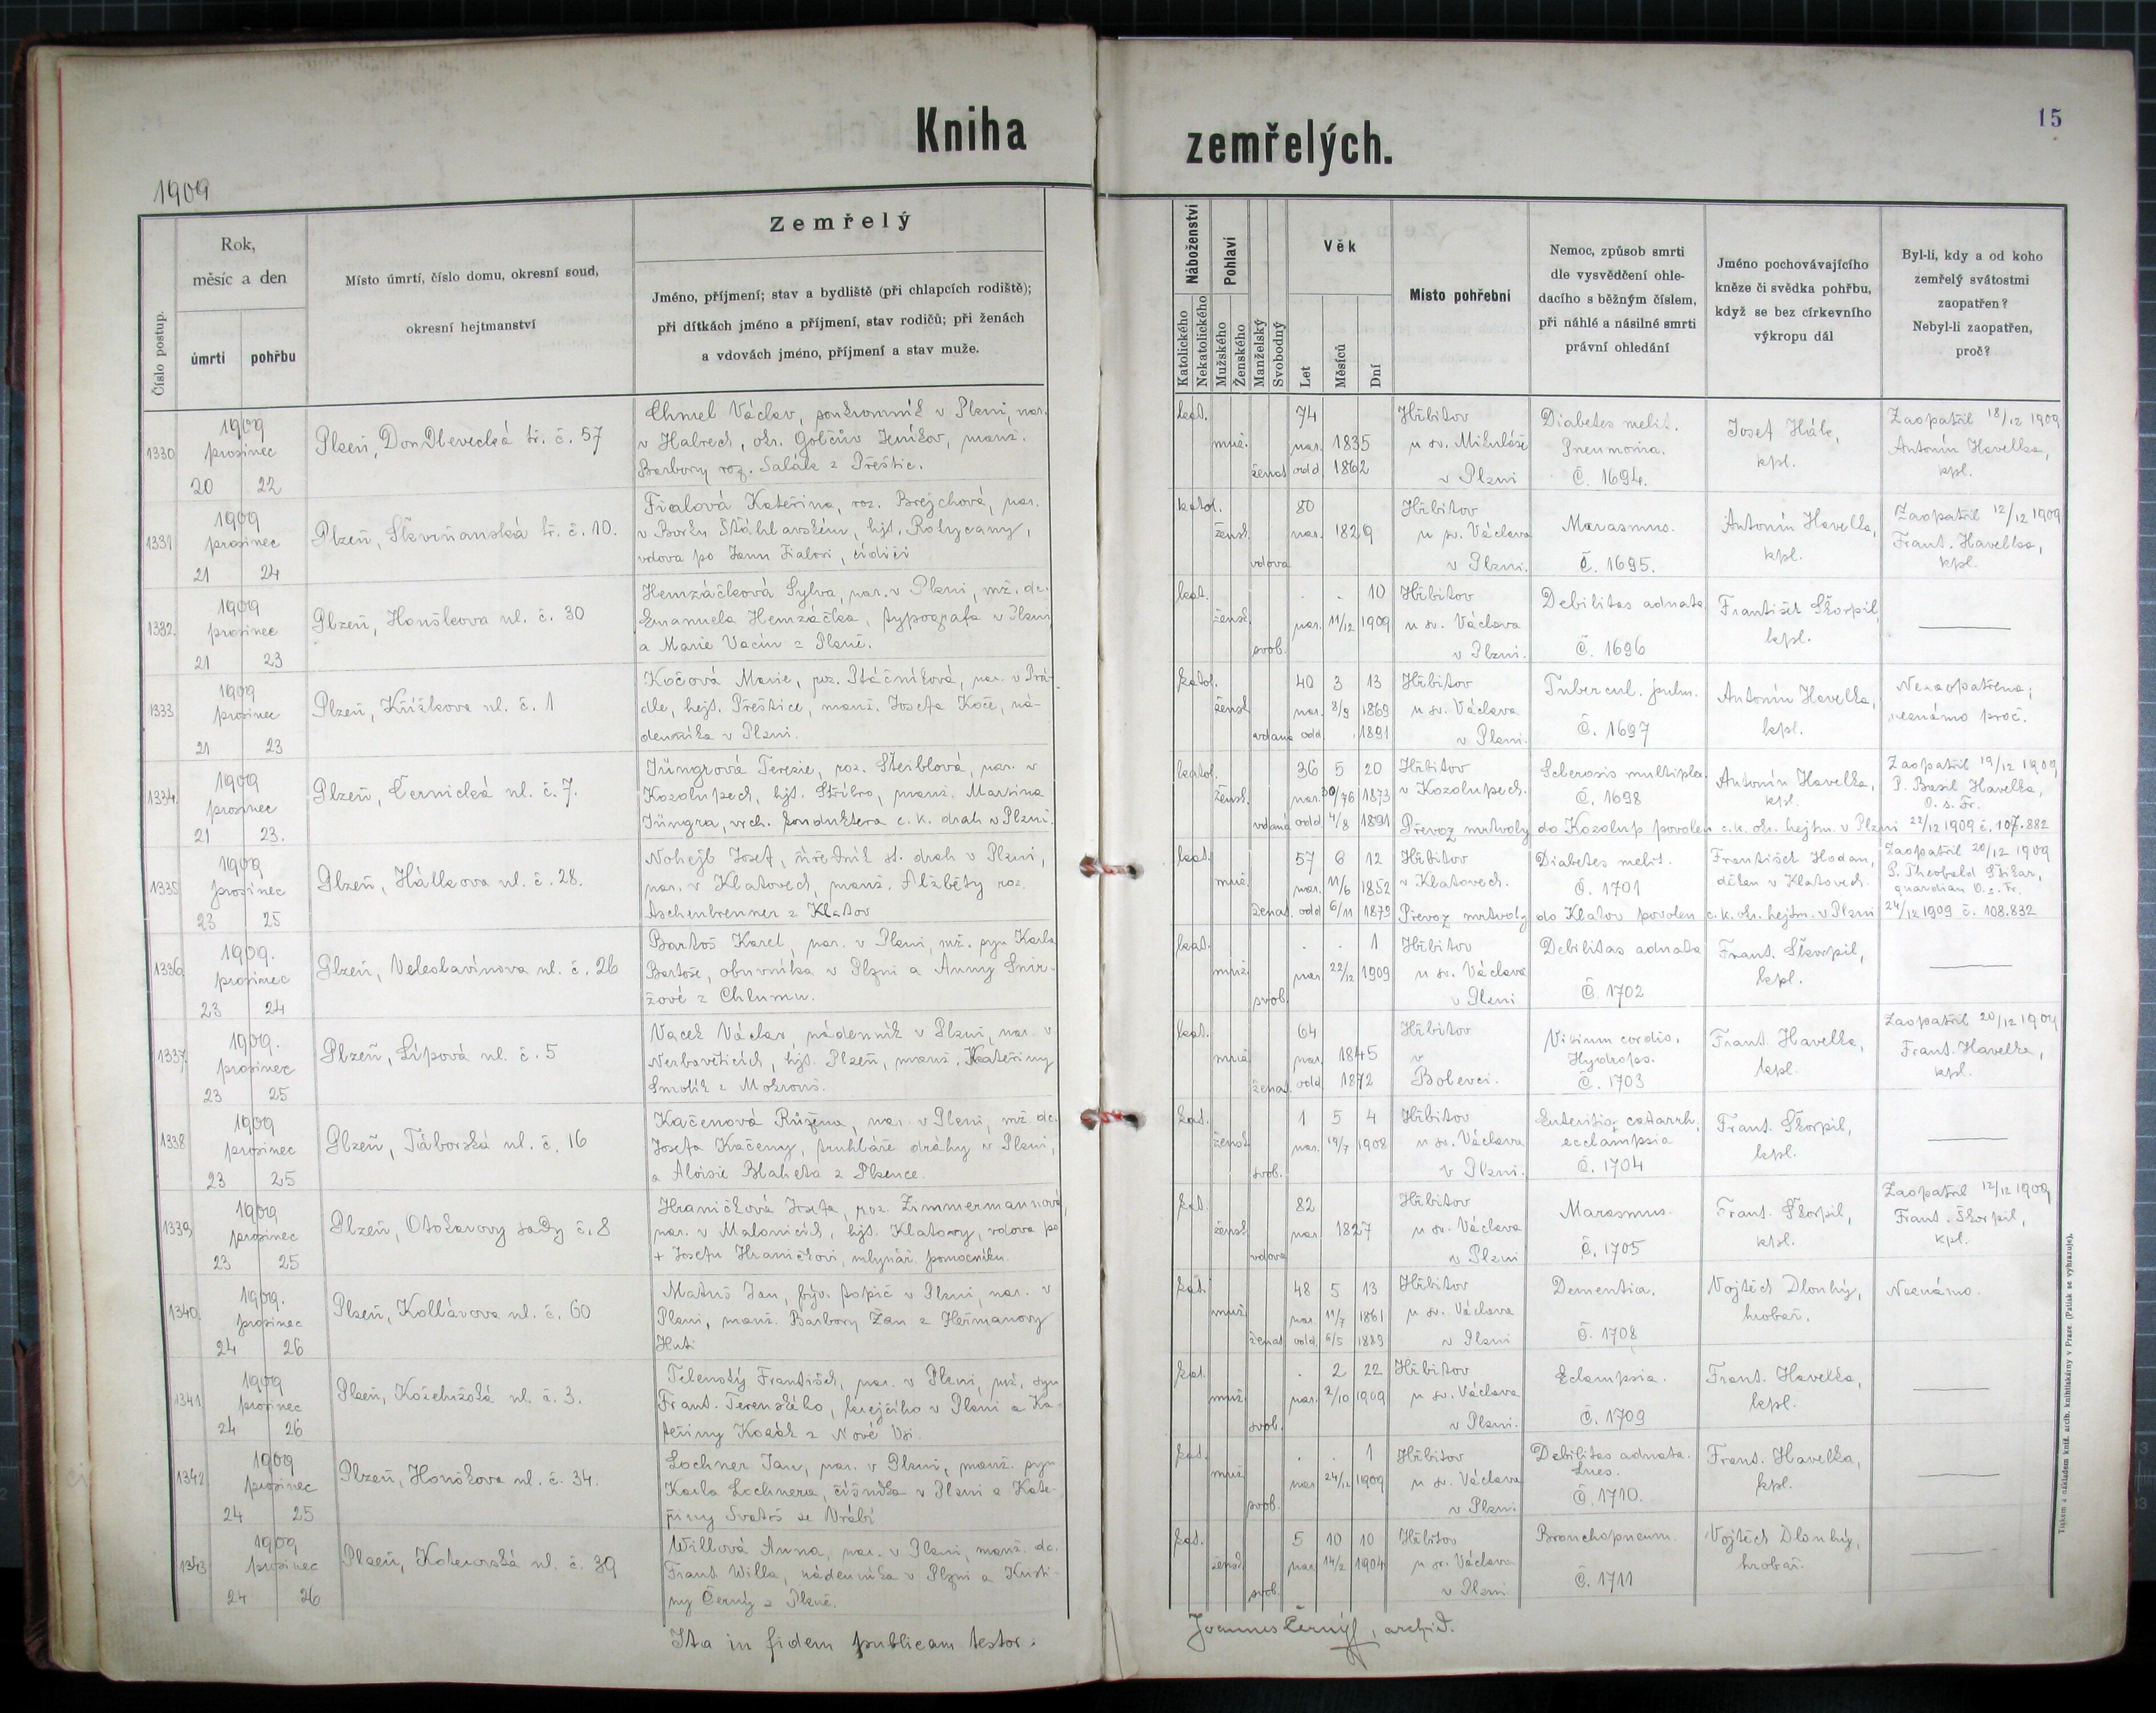 15
Kniha zemřelých.
1909
Číslo postup.
Rok,
měsíc a den
úmrtí
pohřbu
Místo úmrtí, číslo domu, okresní soud,
okresní hejtmanství
Zemřelý
Jméno, příjmení; stav a bydliště (při chlapcích rodiště);
při dítkách jméno a příjmení, stav rodičů; při ženách
a vdovách jméno, příjmení a stav muže.
Náboženství
Katolického
Nekatolického
Pohlaví
Mužského
Ženského
Manželský
Svobodný
Věk
Let
Měsíců
Dní
Místo pohřební
Nemoc, způsob smrti
dle vysvědčení ohle-
dacího s běžným číslem,
při náhlé a násilné smrti
právní ohledání
Jméno pochovávajícího
kněze či svědka pohřbu,
když se bez církevního
výkropu dál
Byl-li, kdy a od koho
zemřelý svátostmi
zaopatřen?
Nebyl-li zaopatřen,
proč?
1330
1909
prosinec
20 22
Plzeň, Doudlevecká tř. č. 57
Chmel Václav, soukromník v Plzni, nar.
v Habrech, okr. Golčův Jeníkov, manž.
Barbory roz. Salák z Přeštic.
kat.
muž.
ženat
74
nar. 1835
odd 1862
Hřbitov
u sv. Mikuláše
v Plzni
Diabetes melit.
Pneumonia.
Č. 1694.
Josef Hák,
kpl.
Zaopatřil 18/12 1909
Antonín Havelka,
kpl.
1331
1909
prosinec
21 24
Plzeň, Skvrňanská tř. č. 10.
Fialová Kateřina, roz. Brejchová, nar.
v Borku Šťáhlavském, hjt. Rokycany,
vdova po Janu Fialovi, cídiči
katol.
žensk.
vdova
80
nar. 1829
Hřbitov
u sv. Václava
v Plzni.
Marasmus.
Č. 1695.
Antonín Havelka,
kpl.
Zaopatřil 12/12 1909
Frant. Havelka,
kpl.
1332.
1909
prosinec
21 23
Plzeň, Houškova ul. č. 30
Hemzáčková Sylva, nar. v Plzni, mž. dc.
Emanuela Hemzáčka, typografa v Plzni
a Marie Vacín z Plzně.
kat.
žensk.
svob.
. . 10
nar. 11/12 1909
Hřbitov
u sv. Václava
v Plzni.
Debilitas adnata
Č. 1696
František Škorpil,
kpl.
1333
1909
prosinec
21 23
Plzeň, Křížkova ul. č. 1
Kočová Marie, roz. Ptáčníková, nar. v Prá-
dle, hejt. Přeštice, manž. Josefa Koče, ná-
denníka v Plzni.
katol.
žensk.
vdaná
40 3 13
nar. 8/9 1869
odd 1891
Hřbitov
u sv. Václava
v Plzni.
Tubercul. pulm.
Č. 1697
Antonín Havelka,
kpl.
Nezaopatřena;
neznámo proč.
1334.
1909
prosinec
21 23.
Plzeň, Černická ul. č. 7.
Jüngrová Terezie, roz. Steiblová, nar. v
Kozolupech, hjt. Stříbro, manž. Martina
Jüngra, vrch. konduktera c. k. drah v Plzni.
katol.
žensk.
vdaná
36 5 20
nar. 1873
odd 4/8 1891
Hřbitov
v Kozolupech.
Sclerosis multiplex
Č. 1698
Antonín Havelka,
kpl.
Zaopatřil 19/12 1909
P. Basil Havelka,
O. s. Fr.
Převoz mrtvoly do Kozolup povolen c. k. okr. hejtm. v Plzni 22/12 1909 č. 107.882
1335
1909
prosinec
23 25
Plzeň, Hálkova ul. č. 28.
Nohejl Josef, úředník st. drah v Plzni,
nar. v Klatovech, manž. Alžběty roz.
Aschenbrenner z Klatov
kat.
muž.
ženat.
57 6 12
nar. 11/6 1852
odd 6/11 1879
Hřbitov
v Klatovech.
Diabetes melit.
Č. 1701
František Hodan,
děkan v Klatovech.
Zaopatřil 20/12 1909
P. Theobald
quardian O. s. Fr.
Převoz mrtvoly do Klatov povolen c. k. okr. hejtm. v Plzni 24/12 1909 č. 108.832
1336
1909.
prosinec
23 24
Plzeň, Veleslavínova ul. č. 26
Bartoš Karel, nar. v Plzni, mž. syn Karla
Bartoše, obuvníka v Plzni a Anny Snír-
žové z Chlumu.
kat.
muž.
svob.
. . 1
nar. 22/12 1909
Hřbitov
u sv. Václava
v Plzni
Debilitas adnata
Č. 1702
Frant. Škorpil,
kpl.
1337
1909.
prosinec
23 25
Plzeň, Lípová ul. č. 5
Vacek Václav, nádenník v Plzni, nar. v
hjt. Plzeň, manž. Kateřiny
Smolík z Mokrouš.
kat.
muž.
ženat.
64
nar. 1845
odd 1872
Hřbitov
v
Bolevci.
Vitium cordis.
Hydrops.
Č. 1703
Frant. Havelka,
kpl.
Zaopatřil 20/12 1909
Frant. Havelka,
kpl.
1338
1909
prosinec
23 25
Plzeň, Táborská ul. č. 16
Kačenová Růžena, nar. v Plzni, mž. dc.
Josefa Kačeny, truhláře dráhy v Plzni,
a Aloisie Blaheta z Plzence.
kat.
žensk.
svob.
1 5 4
nar. 19/7 1908
Hřbitov
u sv. Václava
v Plzni.
Enteritis catarrh.
ecclampsia
Č. 1704
Frant. Škorpil,
kpl.
1339
1909
prosinec
23 25
Plzeň, Otokarovy sady č. 8
Hraničková Josefa, roz. Zimmermannová,
nar. v Malonicích, hjt. Klatovy, vdova po
+ Josefu Hraničkovi, mlynář. pomocníku.
kat.
žensk.
vdova
82
nar. 1827
Hřbitov
u sv. Václava
v Plzni
Marasmus.
Č. 1705
Frant. Škorpil,
kpl.
Zaopatřil 12/12 1909
Frant. Škorpil,
kpl.
1340.
1909.
prosinec
24 26
Plzeň, Kollárova ul. č. 60
Matouš Jan, býv. topič v Plzni, nar. v
Plzni, manž. Barbory Žan z Heřmanovy
Huti
kat.
muž.
ženat
48 5 13
nar. 11/7 1861
odd 6/5 1889
Hřbitov
u sv. Václava
v Plzni
Dementia.
Č. 1708
Vojtěch Dlouhý,
hrobař.
Neznámo.
1341
1909
prosinec
24 26
Plzeň, Kožešická ul. č. 3.
Telenský František, nar. v Plzni, mž. syn
Frant. Terenského, krejčího v Plzni a Ka-
teřiny Kozák z Nové Vsi.
kat.
muž.
svob.
. 2 22
nar. 2/10 1909
Hřbitov
u sv. Václava
v Plzni.
Eclampsia.
Č. 1709
Frant. Havelka,
kpl.
1342
1909
prosinec
24 25
Plzeň, Houškova ul. č. 34.
Lochner Jan, nar. v Plzni, manž. syn
Karla Lochnera, číšníka v Plzni a Kate-
řiny Svatoš ze Vrábí
kat.
muž.
svob.
. . 1
nar. 24/12 1909
Hřbitov
u sv. Václava
v Plzni
Debilitas adnata.
Lues.
Č. 1710.
Frant. Havelka,
kpl.
1343
1909
prosinec
24 26
Plzeň, Koterovská ul. č. 39
Willová Anna, nar. v Plzni, manž. dc.
Frant. Willa, nádenníka v Plzni a Kristi-
ny Černý z Plzně.
kat.
žensk.
svob.
5 10 10
nar. 14/2 1904
Hřbitov
u sv. Václava
v Plzni.
Bronchopneum.
Č. 1711
Vojtěch Dlouhý,
hrobař.
Ita in fidem publicam testor:
Joannes Černý, archid.
Tiskem a nákladem kníž. arcib. knihtiskárny v Praze. (Patisk se vyhrazuje).